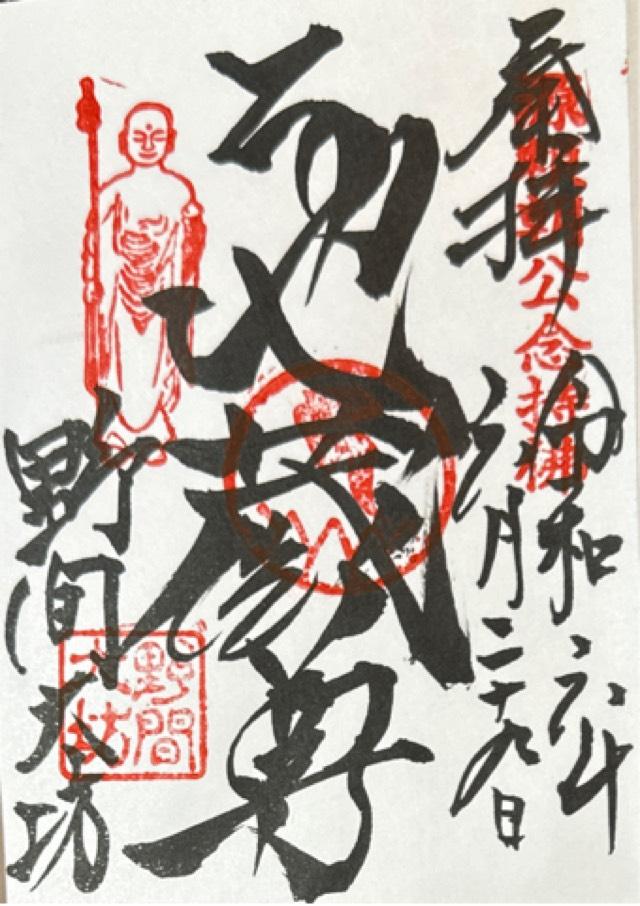 奉拝
源頼朝公念持佛
令和六年
月二十九日
地蔵尊
野間大坊
野間
大坊